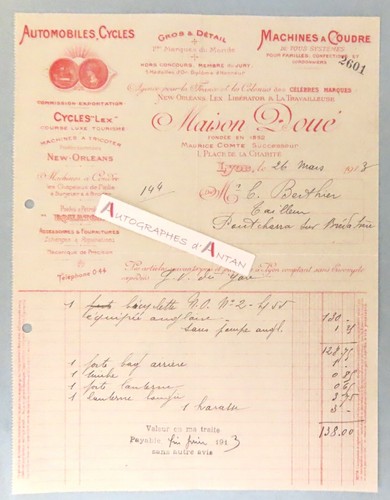 AUTOMOBILES, CYCLES
GROS & DÉTAIL
1res Marques du Monde
HORS CONCOURS, MEMBRE DU JURY
MACHINES A COUDRE
DE TOUS SYSTÈMES
POUR FAMILLES, CONFECTIONS ET
CORDONNIERS
2601
Agence pour la France et les Colonies des CÉLÈBRES MARQUES
NEW-ORLEANS, LEX, LIBERATOR & LA TRAVAILLEUSE
COMMISSION EXPORTATION
CYCLES "LEX"
COURSE LUXE TOURISME
MACHINES A TRICOTER
NEW-ORLEANS
Machines à Coudre
les Chapeaux de Paille
Maison Doué
FONDÉE EN 1860
MAURICE COMTE SUCCESSEUR
1, PLACE DE LA CHARITÉ
Lyon, le 26 mars 1913
144
Mr C. Berthier
Tailleur
Pontcharra sur Bréda Isère
ACCESSOIRES & FOURNITURES
Échanges & Réparations
MÉCANIQUE DE PRÉCISION
Téléphone 0-44
AUTOGRAPHES D'ANTAN
1 bicyclette N.O. No 2 - 455
équipée anglaise 130 -
sans pompe angl. 1 25
128,75
1 porte bag arriere 1 -
1 timbre 0 85
1 porte lanterne 0 65
1 lanterne 3 75
1 3 -
138.00
Valeur en ma traite
Payable fin juin 1913
sans autre avis